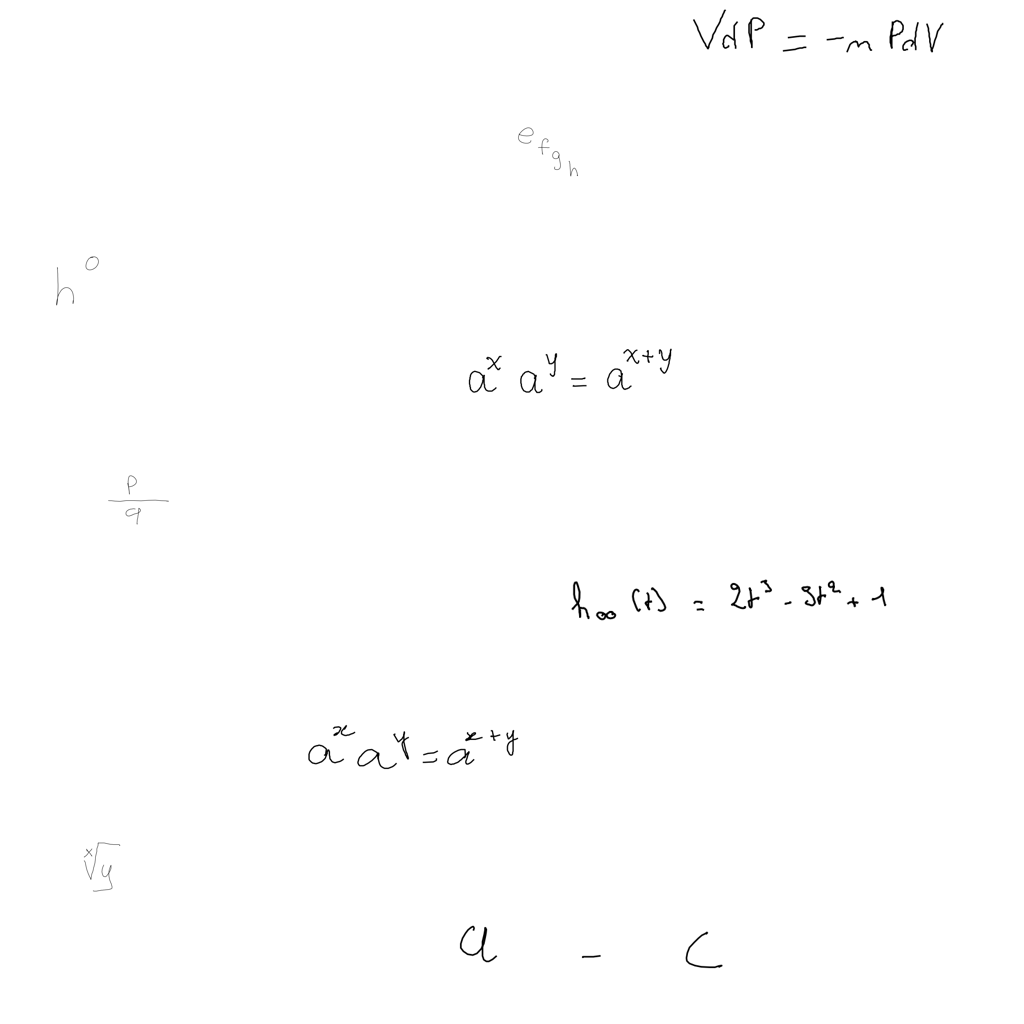 VdP = -nPdV
e_{f_{g_h}}
h^0
a^x a^y = a^{x+y}
\frac{p}{q}
h_{00}(t) = 2t^3 - 3t^2 + 1
a^x a^y = a^{x+y}
\sqrt[x]{y}
a - c